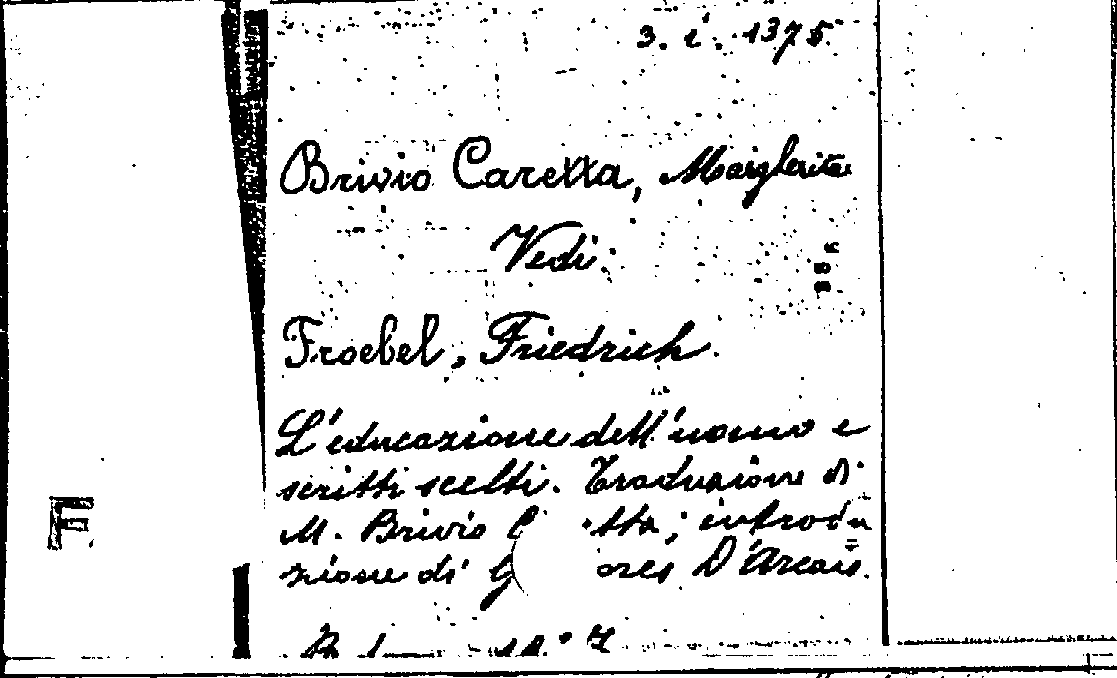 3. i. 1375
Brivio Caretta, Margherita
Vedi:
Froebel, Friedrich.
L'educazione dell'uomo e
scritti scelti. Traduzione di
M. Brivio C tta; introdu
zione di G ores D'Arcais.
F